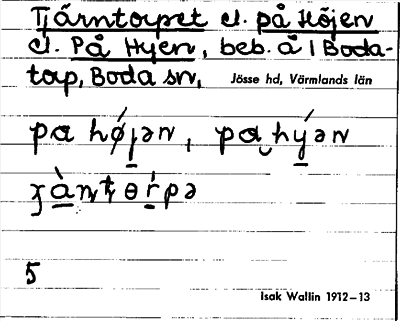 Tjärntorpet el. på Höjen
el. På Hyen, beb. å i Boda-
torp, Boda sn, Jösse hd, Värmlands län
pa hǿjən, pa hýən
5
Isak Wallin 1912–13